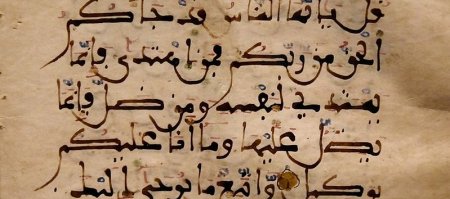 قل يايها الناس قد جاكم
الحق من ربكم فمن اهتدى فإنما
يهتدي لنفسه ومن ضل فإنما
يضل عليها وما أنا عليكم
بوكيل واتبع ما يوحى إليك